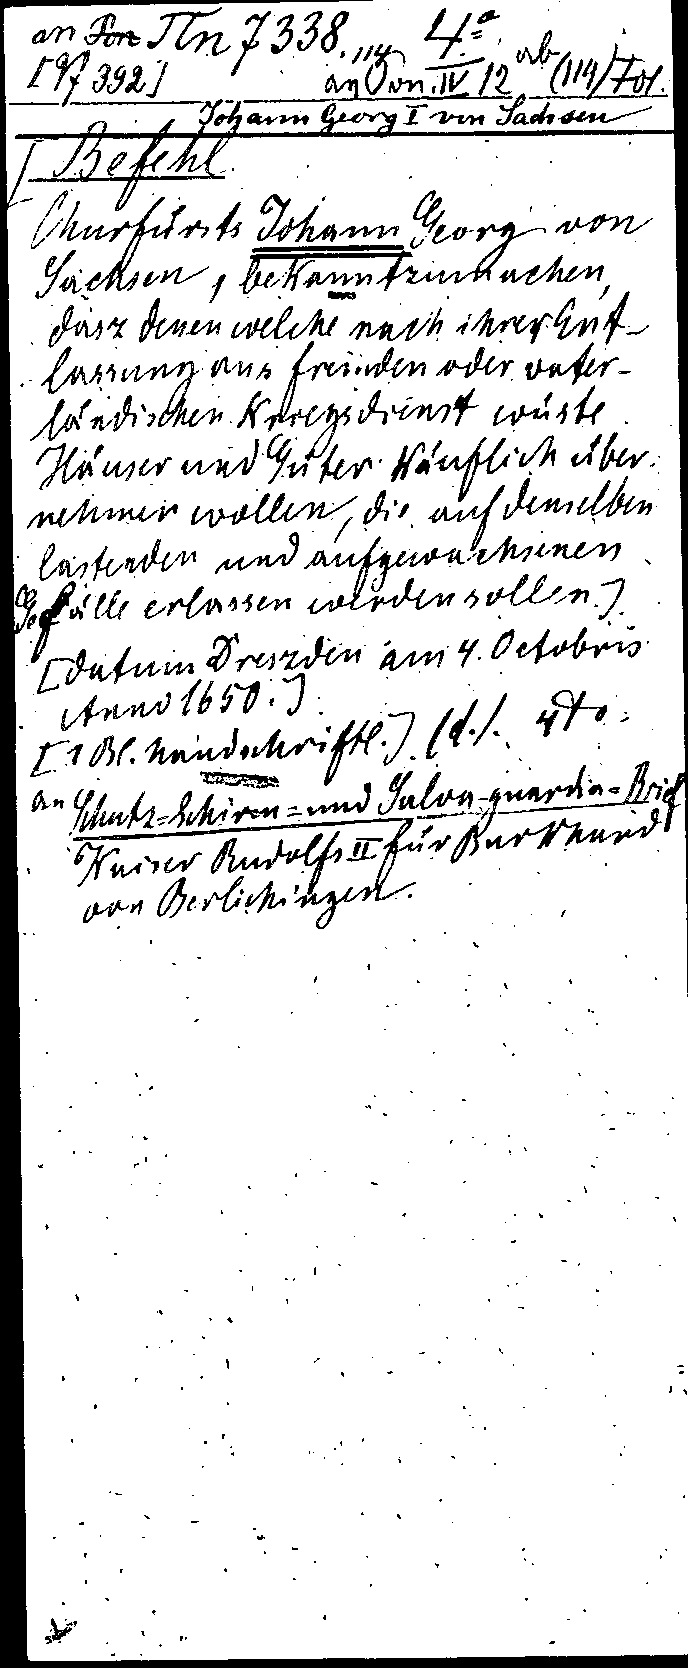 an Πn 7338. 4.ª
[97392] an Von. IV 12 ab (114) Fol.
Johann Georg I von Sachsen
[Befehl
Churfürsts Johann Georg von
Sachsen, bekanntzumachen,
dasz denen welche nach ihrer Ent-
lassung aus fremden oder vater-
ländischen Kriegsdienst wüste
Häuser und Güter käuflich über-
nehmen wollen, die auf denselben
lastenden und aufgewachsenen
Gefälle erlassen werden sollen.]
[datum Dreszden am 4. Octobris
Anno 1650.]
[1 Bl. handschriftl.] (d.). 4to.
an Schutz=Schirm=und Salva-guardia=Brief
Kaiser Rudolfs II für Burkhard
von Berlichingen.